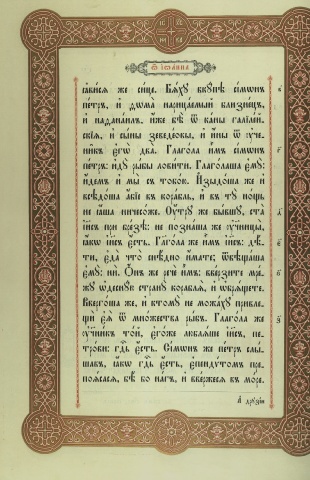 Ѿ іѡа́нна
гависѧ же си́це. Бѧ́хꙋ вкꙋ́пѣ сі́мѡнъ
пе́тръ, и҆ ѳѡма̀ нарица́емый близне́цъ,
и҆ наѳана́илъ, и҆́же бѣ̀ ѿ ка́ны галїле́й-
скїѧ, и҆ сы̑на зеведе́ѡва, и҆ и҆́на ѿ ᲂу҆че-
ни̑къ є҆гѡ̀ два̀. Глаго́ла и҆̀мъ сі́мѡнъ
пе́тръ: и҆дꙋ̀ ры́бы лови́ти. Глаго́лаша є҆мꙋ̀:
и҆́демъ и҆ мы̀ съ тобо́ю. И҆зыдо́ша же и҆
всѣдо́ша а҆́бїе въ кора́бль, и҆ въ тꙋ̀ но́щь
не ꙗ҆́ша ничесо́же. Оу҆́трꙋ же бы́вшꙋ, ста̀
і҆и҃съ при бре́зѣ: не позна́ша же ᲂу҆чн҃цы̀,
ꙗ҆́кѡ і҆и҃съ є҆́сть. Глаго́ла же и҆̀мъ і҆и҃съ: дѣ́-
ти, є҆да̀ что̀ снѣ́дно и҆́мате; ѿвѣща́ша
є҆мꙋ̀: нѝ. Ѻ҆́нъ же речѐ и҆̀мъ: вве́рзите мре́-
жꙋ ѡ҆деснꙋ́ю странꙋ̀ кораблѧ̀, и҆ ѡ҆брѧ́щете.
Вверго́ша же, и҆ ктомꙋ̀ не можа́хꙋ привлещѝ
є҆ѧ̀ ѿ мно́жества ры́бъ. Глаго́ла же
ᲂу҆чн҃къ то́й, є҆го́же любѧ́ше і҆и҃съ, пе-
тро́ви: гд҇ь є҆́сть. Сі́мѡнъ же пе́тръ слы́-
шавъ, ꙗ҆́кѡ гд҇ь є҆́сть, є҆пенди́томъ пре-
поѧ́сасѧ, бѣ́ бо на́гъ, и҆ вве́ржесѧ въ мо́ре.
А҆ дрꙋзі́и